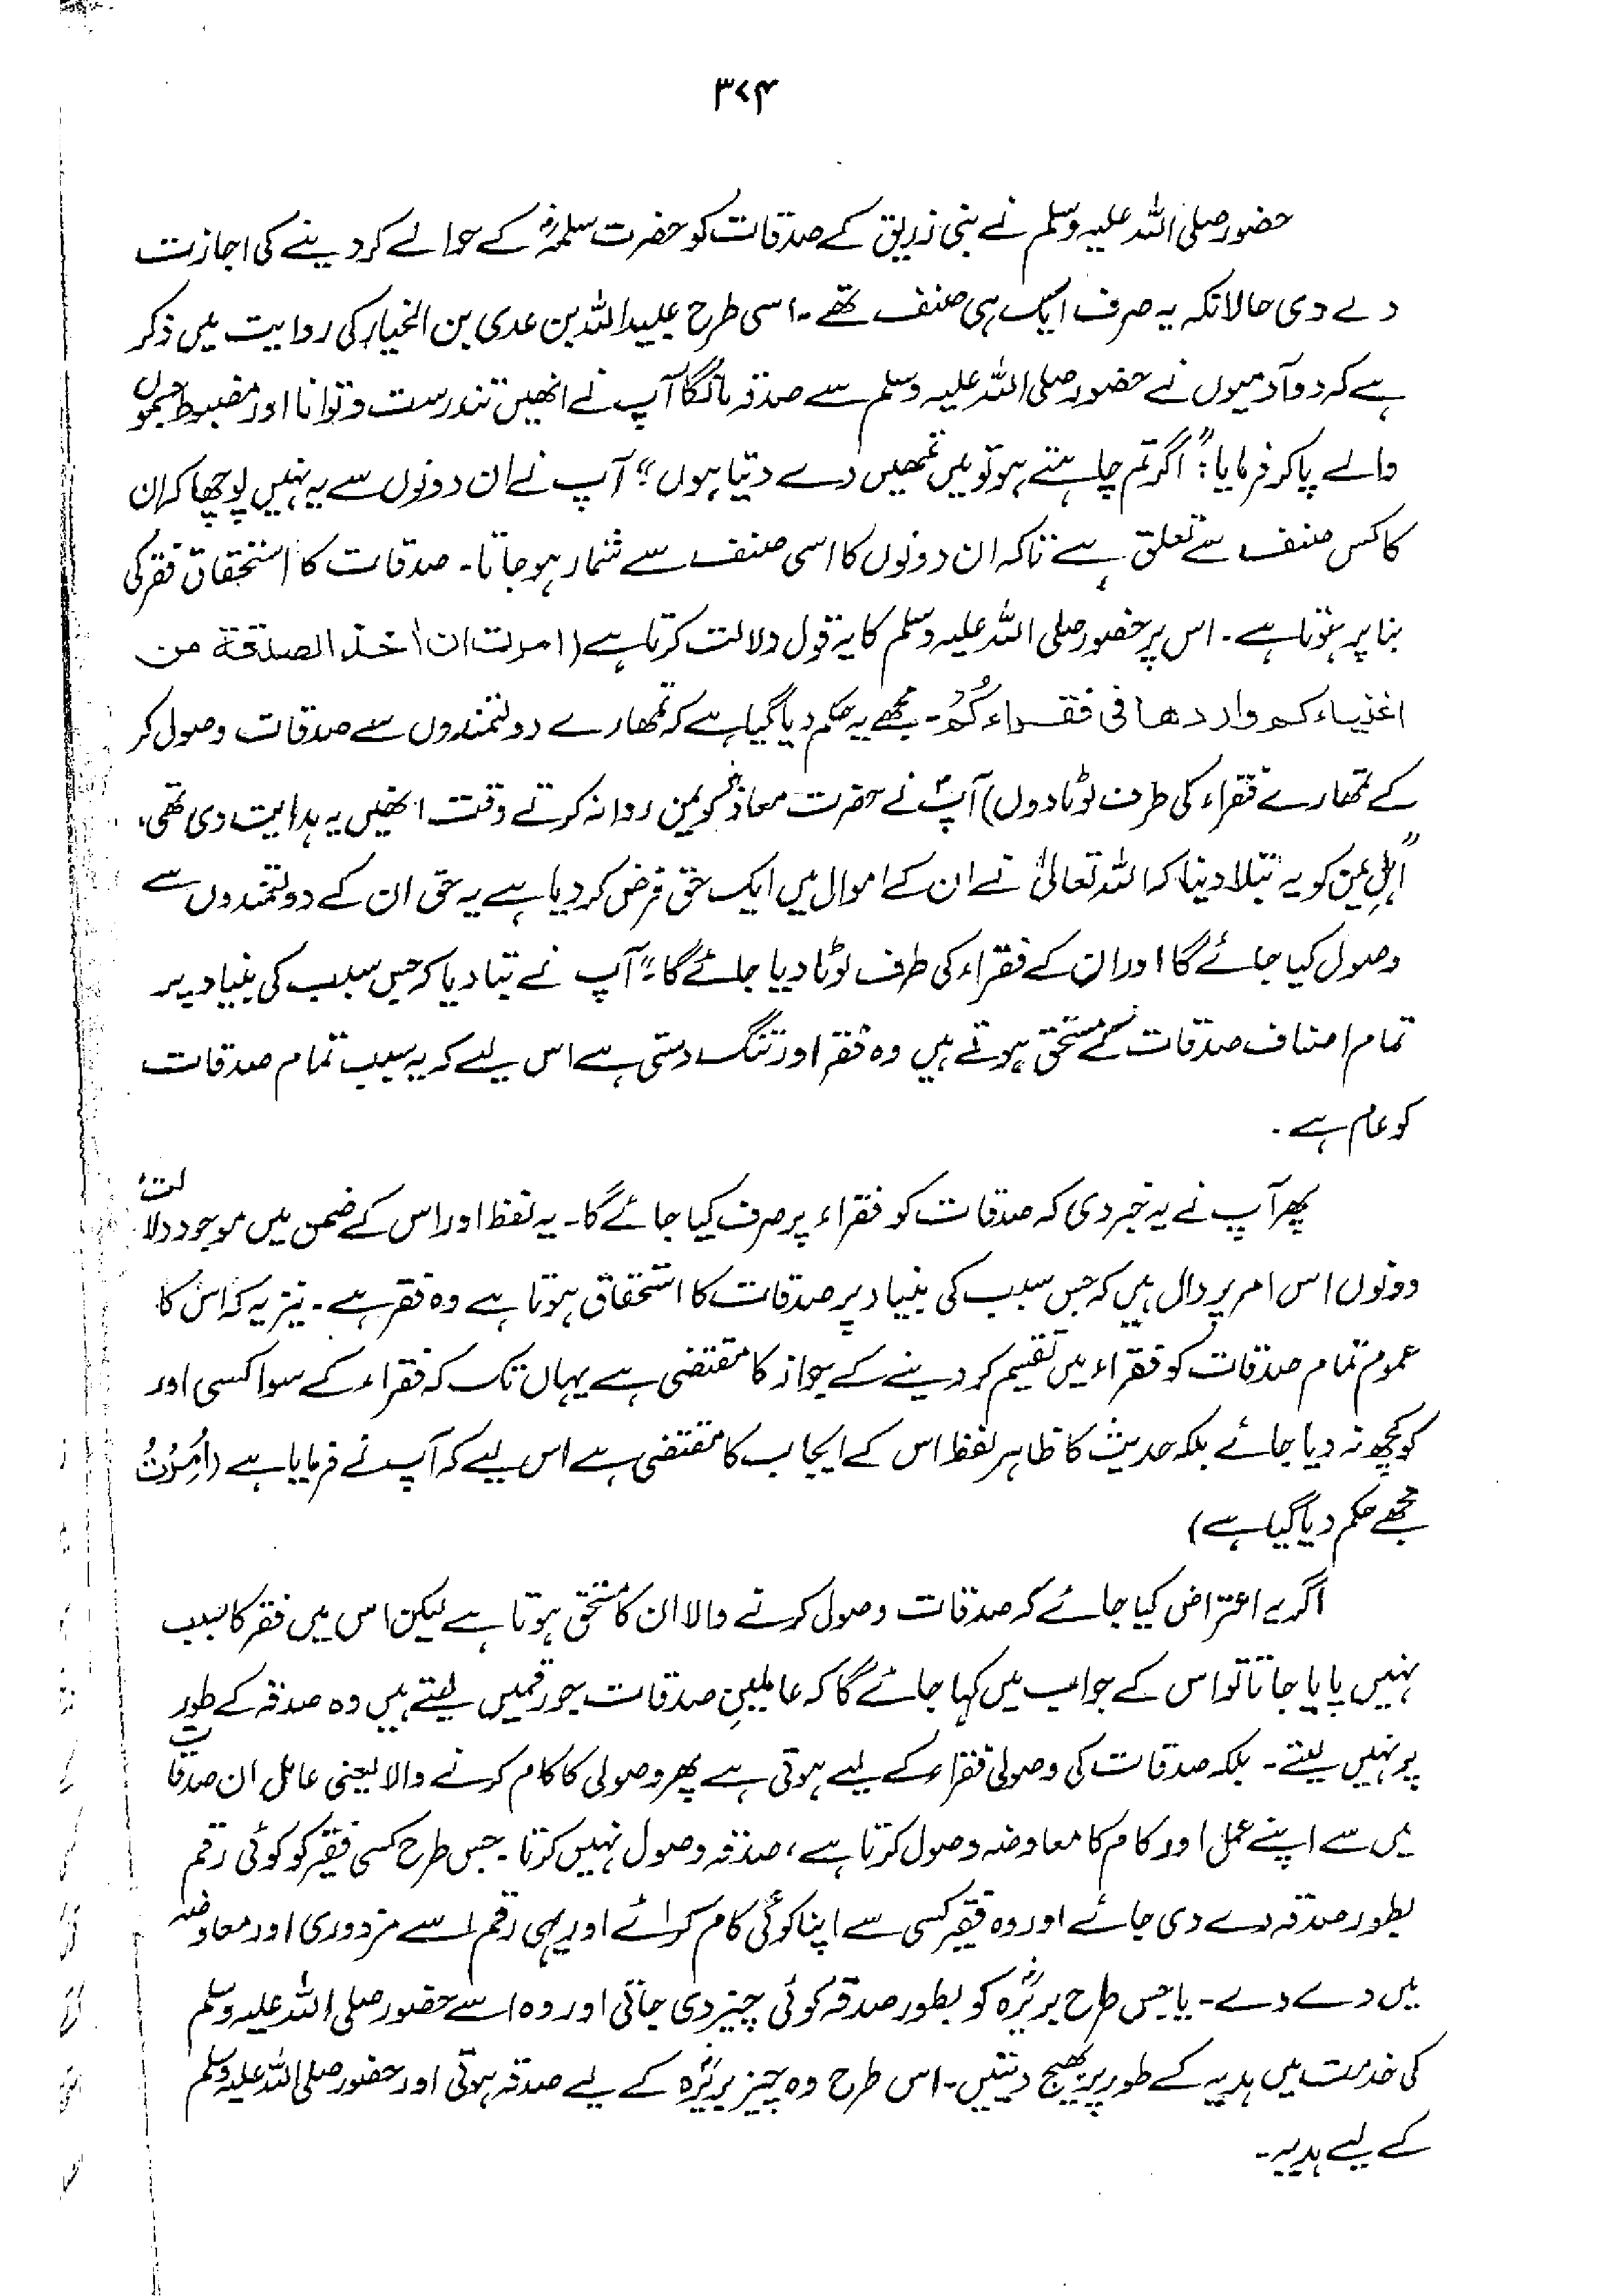 ۳۷۴
حضور صلی اللہ علیہ وسلم نے بنی زریق کے صدقات کو حضرت سلمہؓ کے حوالے کر دینے کی اجازت
دے دی حالانکہ یہ صرف ایک ہی صنف تھے۔ اسی طرح عبیداللہ بن عدی بن الخیار کی روایت میں ذکر
ہے کہ دو آدمیوں نے حضور صلی اللہ علیہ وسلم سے صدقہ مانگا آپ نے انھیں تندرست و توانا اور مضبوط جسموں
والے پاکر فرمایا: "اگر تم چاہتے ہو تو میں تمھیں دے دیتا ہوں" آپ نے ان دونوں سے یہ نہیں پوچھا کہ ان
کا کس صنف سے تعلق ہے تاکہ ان دونوں کا اسی صنف سے شمار ہو جاتا۔ صدقات کا استحقاق فقر کی
بنا پر ہوتا ہے۔ اس پر حضور صلی اللہ علیہ وسلم کا یہ قول دلالت کرتا ہے (امرت ان اٰخذ الصدقة من
اغنیاءکم واردھا فی فقراءکُمْ۔ مجھے یہ حکم دیا گیا ہے کہ تمھارے دولتمندوں سے صدقات وصول کر
کے تمھارے فقراء کی طرف لوٹا دوں) آپؐ نے حضرت معاذؓ کو یمن روانہ کرتے وقت انھیں یہ ہدایت دی تھی،
"اہلِ یمن کو یہ بتلا دینا کہ اللہ تعالیٰ نے ان کے اموال میں ایک حق فرض کر دیا ہے یہ حق ان کے دولتمندوں سے
وصول کیا جائے گا اور ان کے فقراء کی طرف لوٹا دیا جائے گا"۔ آپ نے بتا دیا کہ جس سبب کی بنیاد پر
تمام اصناف صدقات کے مستحق ہوتے ہیں وہ فقر اور تنگ دستی ہے اس لیے کہ یہ سبب تمام صدقات
کو عام ہے۔
پھر آپ نے یہ خبر دی کہ صدقات کو فقراء پر صرف کیا جائے گا۔ یہ لفظ اور اس کے ضمن میں موجود دلالت
دونوں اس امر پر دال ہیں کہ جس سبب کی بنیاد پر صدقات کا استحقاق ہوتا ہے وہ فقر ہے۔ نیز یہ کہ اس کا
عموم تمام صدقات کو فقراء میں تقسیم کر دینے کے جواز کا مقتضی ہے یہاں تک کہ فقراء کے سوا کسی اور
کو کچھ نہ دیا جائے بلکہ حدیث کا ظاہر لفظ اس کے ایجاب کا مقتضی ہے اس لیے کہ آپ نے فرمایا ہے (اُمِرْتُ
مجھے حکم دیا گیا ہے)
اگر یہ اعتراض کیا جائے کہ صدقات وصول کرنے والا ان کا مستحق ہوتا ہے لیکن اس میں فقر کا سبب
نہیں پایا جاتا تو اس کے جواب میں کہا جائے گا کہ عاملینِ صدقات جو رقمیں لیتے ہیں وہ صدقہ کے طور
پر نہیں لیتے۔ بلکہ صدقات کی وصولی فقراء کے لیے ہوتی ہے پھر وصولی کا کام کرنے والا یعنی عامل ان صدقات
میں سے اپنے عمل اور کام کا معاوضہ وصول کرتا ہے، صدقہ وصول نہیں کرتا۔ جس طرح کسی فقیر کو کوئی رقم
بطور صدقہ دے دی جائے اور وہ فقیر کسی سے اپنا کوئی کام کرائے اور یہی رقم اسے مزدوری اور معاوضہ
میں دے دے۔ یا جس طرح بریرہؓ کو بطور صدقہ کوئی چیز دی جاتی اور وہ اسے حضور صلی اللہ علیہ وسلم
کی خدمت میں ہدیہ کے طور پر بھیج دیتیں۔ اس طرح وہ چیز بریرہؓ کے لیے صدقہ ہوتی اور حضور صلی اللہ علیہ وسلم
کے لیے ہدیہ۔